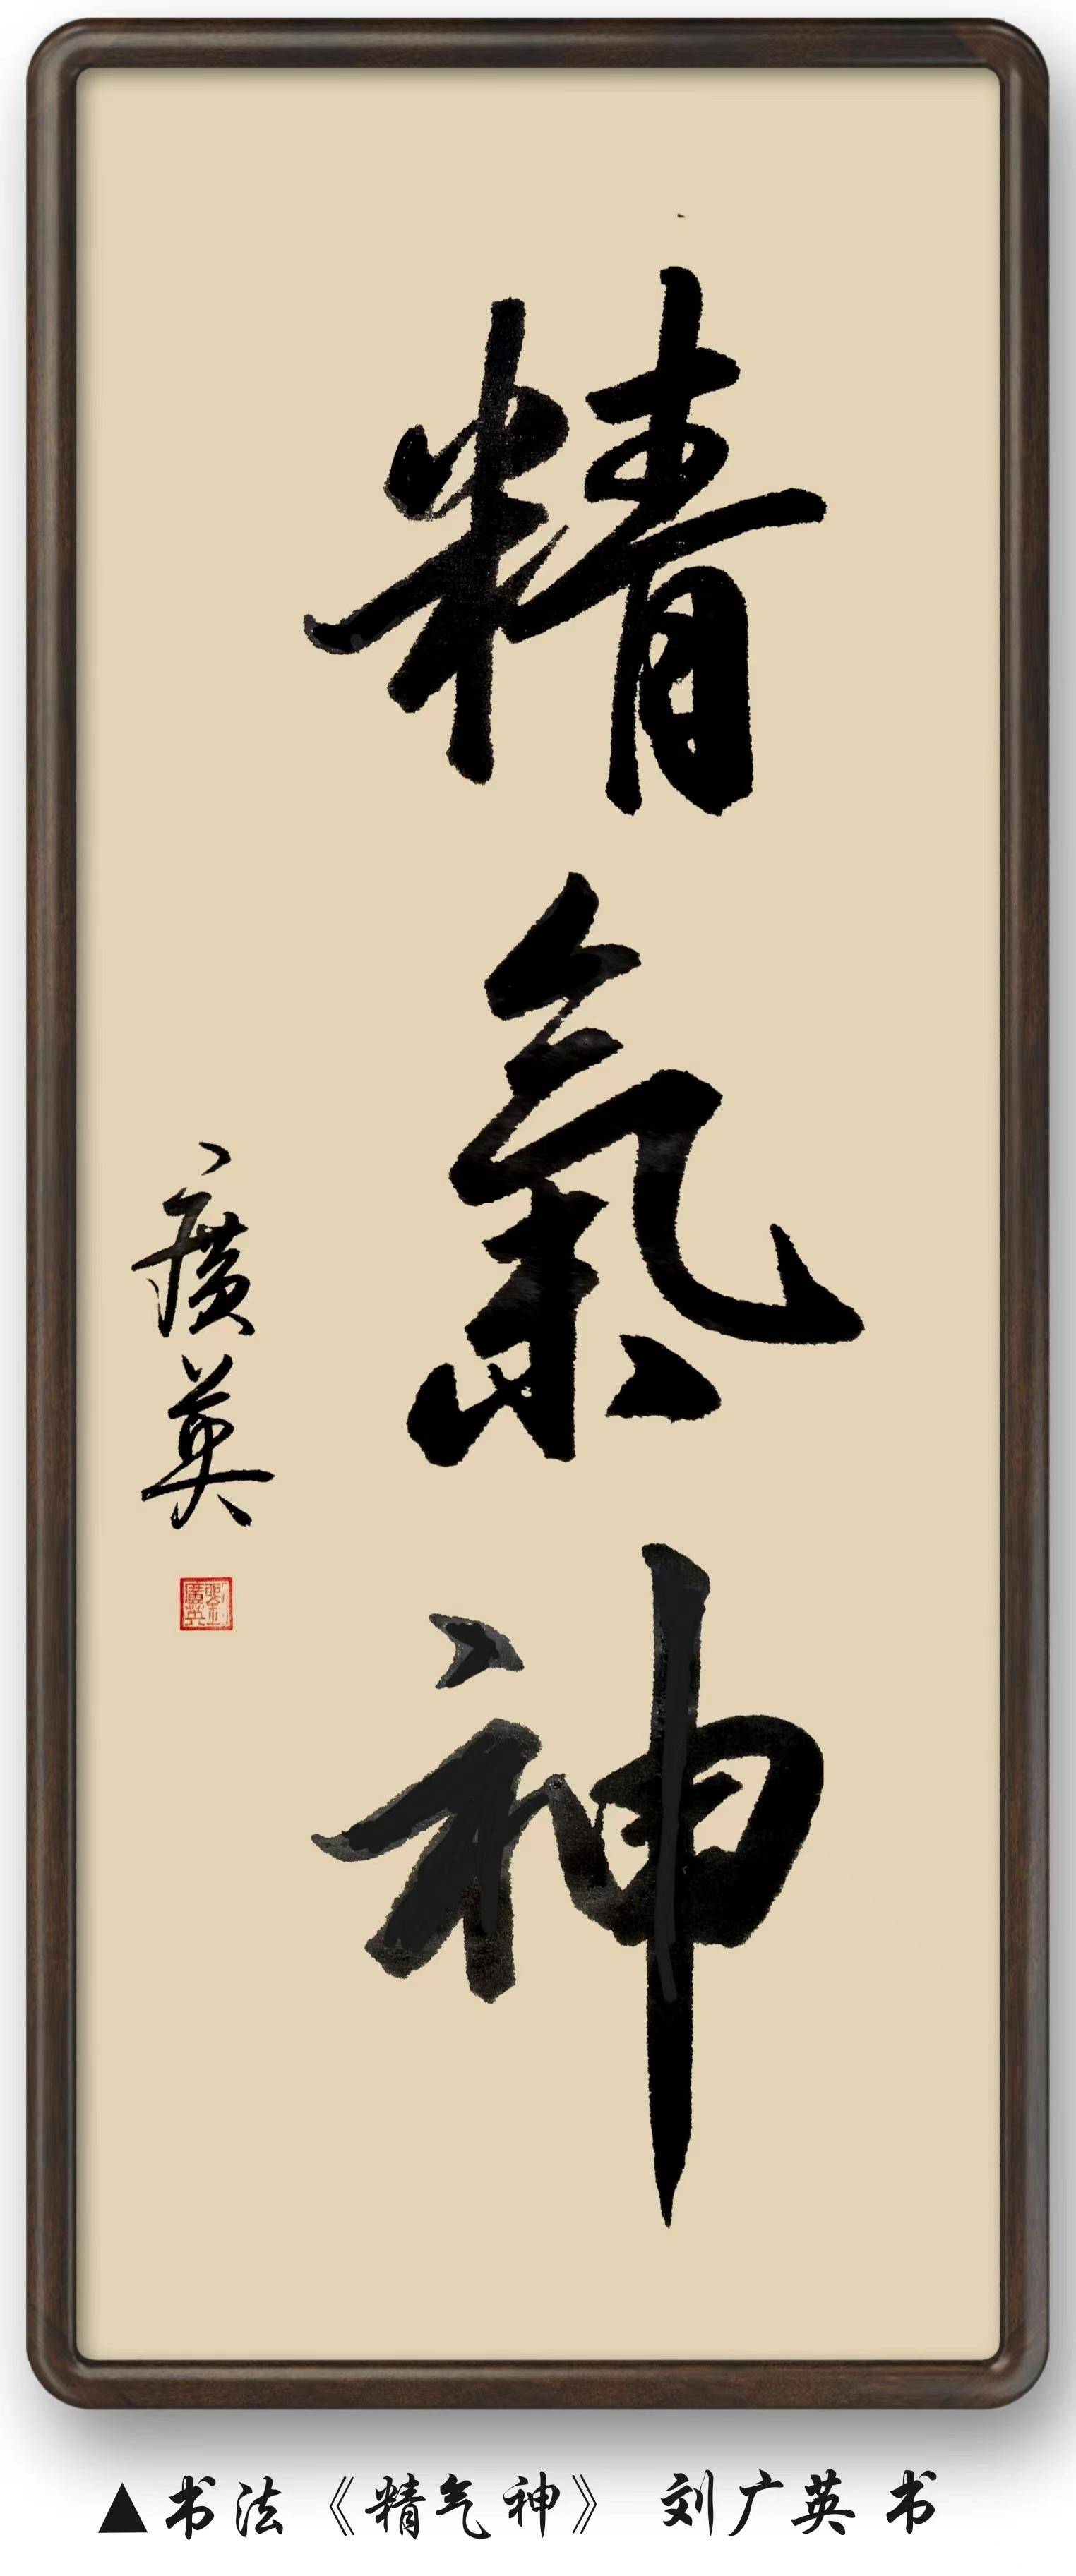 精氣神
廣英
劉廣英
▲书法《精气神》 刘广英 书